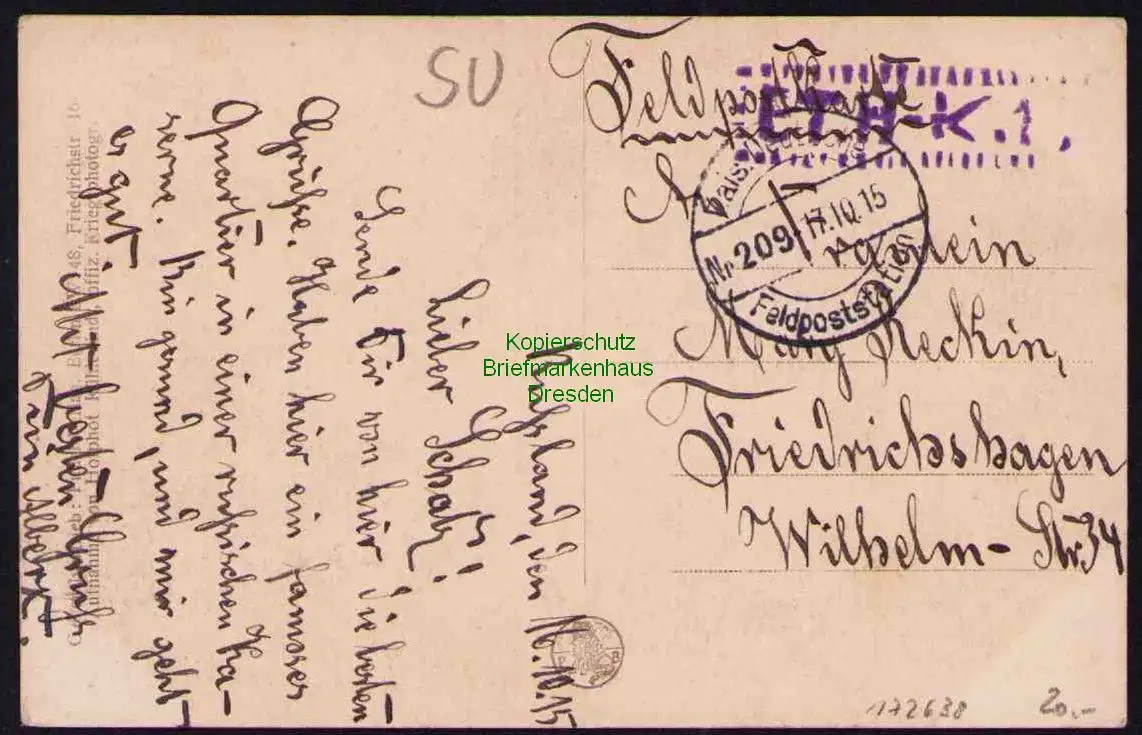 SU
Feldpostkarte
E.T.A-K.1.
Kais. Deutsche
Nr 209 17.10.15
Feldpoststation
An
Fraulein
Marg Reckin,
Friedrichshagen
Wilhelm-Str. 34
Rußland, den 16.10.15
Lieber Schatz!
Sende Dir von hier die besten
Grüße. Haben hier ein famoses
Quartier in einer russischen Ka-
serne. Bin gesund, und mir geht
es gut
Dein Albert.
48, Friedrichstr 16
offiz. Kriegsphotogr.
Kopierschutz
Briefmarkenhaus
Dresden
172638
20.-